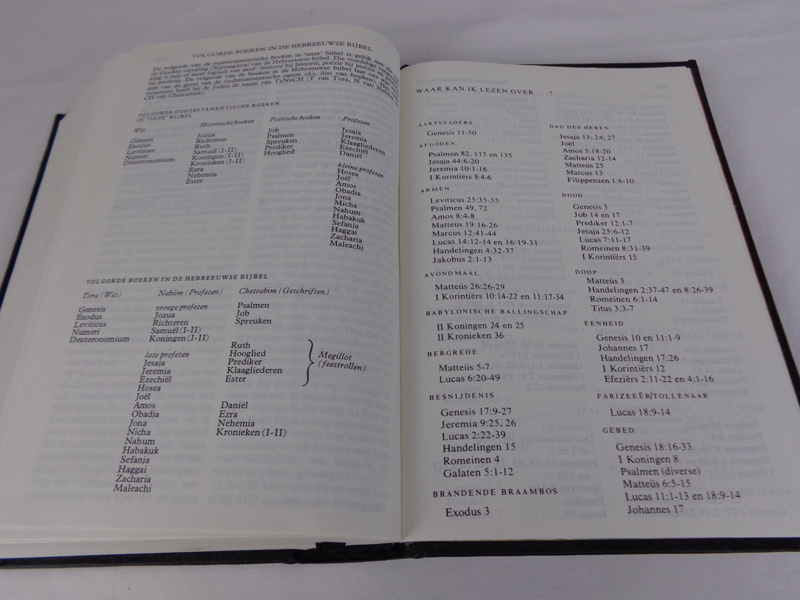 VOLGORDE BOEKEN IN DE HEBREEUWSE BIJBEL
De volgorde van de oudtestamentische boeken in 'onze' bijbel is gelijk aan
de Griekse vertaling (Septuaginta) van de Hebreeuwse bijbel. Die vierdeling
CH van Chetoebim)
VOLGORDE OUDTESTAMENTISCHE BOEKEN
IN 'ONZE' BIJBEL
Wet Historische boeken Poëtische boeken Profeten
Genesis Jozua Job Jesaja
Exodus Richteren Psalmen Jeremia
Leviticus Ruth Spreuken Klaagliederen
Numeri Samuël (I-II) Prediker Ezechiël
Deuteronomium Koningen (I-II) Hooglied Daniël
Kronieken (I-II)
Ezra
Nehemia
Ester
kleine profeten
Hosea
Joël
Amos
Obadja
Jona
Micha
Nahum
Habakuk
Sefanja
Haggai
Zacharia
Maleachi
VOLGORDE BOEKEN IN DE HEBREEUWSE BIJBEL
Tora (Wet) Nebiim (Profeten) Chetoebim (Geschriften)
Genesis vroege profeten Psalmen
Exodus Jozua Job
Leviticus Richteren Spreuken
Numeri Samuël (I-II)
Deuteronomium Koningen (I-II)
Ruth
late profeten Hooglied
Jesaja Prediker
Jeremia Klaagliederen
Ezechiël Ester
Megillot
(feestrollen)
Hosea
Joël
Amos Daniël
Obadja Ezra
Jona Nehemia
Nicha Kronieken (I-II)
Nahum
Habakuk
Sefanja
Haggai
Zacharia
Maleachi
WAAR KAN IK LEZEN OVER . . . ?
AARTSVADERS
Genesis 11-50
AFGODEN
Psalmen 82, 115 en 135
Jesaja 44:6-20
Jeremia 10:1-16
I Korintiërs 8:4-6
ARMEN
Leviticus 25:35-55
Psalmen 49, 72
Amos 8:4-8
Matteüs 19:16-26
Marcus 12:41-44
Lucas 14:12-14 en 16:19-31
Handelingen 4:32-37
Jakobus 2:1-13
AVONDMAAL
Matteüs 26:26-29
I Korintiërs 10:14-22 en 11:17-34
BABYLONISCHE BALLINGSCHAP
II Koningen 24 en 25
II Kronieken 36
BERGREDE
Matteüs 5-7
Lucas 6:20-49
BESNIJDENIS
Genesis 17:9-27
Jeremia 9:25, 26
Lucas 2:22-39
Handelingen 15
Romeinen 4
Galaten 5:1-12
BRANDENDE BRAAMBOS
Exodus 3
DAG DES HEREN
Jesaja 13; 24, 27
Joël
Amos 5:18-20
Zacharia 12-14
Matteüs 25
Marcus 13
Filippenzen 1:6-10
DOOD
Genesis 3
Job 14 en 17
Prediker 12:1-7
Jesaja 25:6-12
Lucas 7:11-17
Romeinen 8:31-39
I Korintiërs 15
DOOP
Matteüs 3
Handelingen 2:37-47 en 8:26-39
Romeinen 6:1-14
Titus 3:3-7
EENHEID
Genesis 10 en 11:1-9
Johannes 17
Handelingen 17:26
I Korintiërs 12
Efeziërs 2:11-22 en 4:1-16
FARIZEEËR/TOLLENAAR
Lucas 18:9-14
GEBED
Genesis 18:16-33
I Koningen 8
Psalmen (diverse)
Matteüs 6:5-15
Lucas 11:1-13 en 18:9-14
Johannes 17